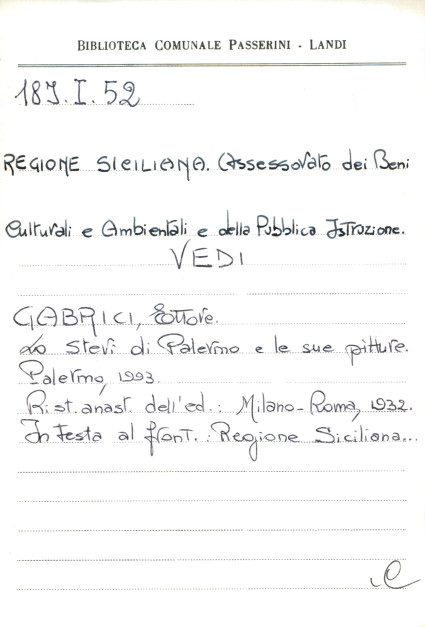 BIBLIOTECA COMUNALE PASSERINI - LANDI
18J.I.52
REGIONE SICILIANA. Assessorato dei Beni
Culturali e Ambientali e della Pubblica Istruzione.
VEDI
GABRICI, Ettore.
Lo Steri di Palermo e le sue pitture.
Palermo, 1993.
Rist. anast. dell'ed.: Milano-Roma, 1932.
In testa al front.: Regione Siciliana...